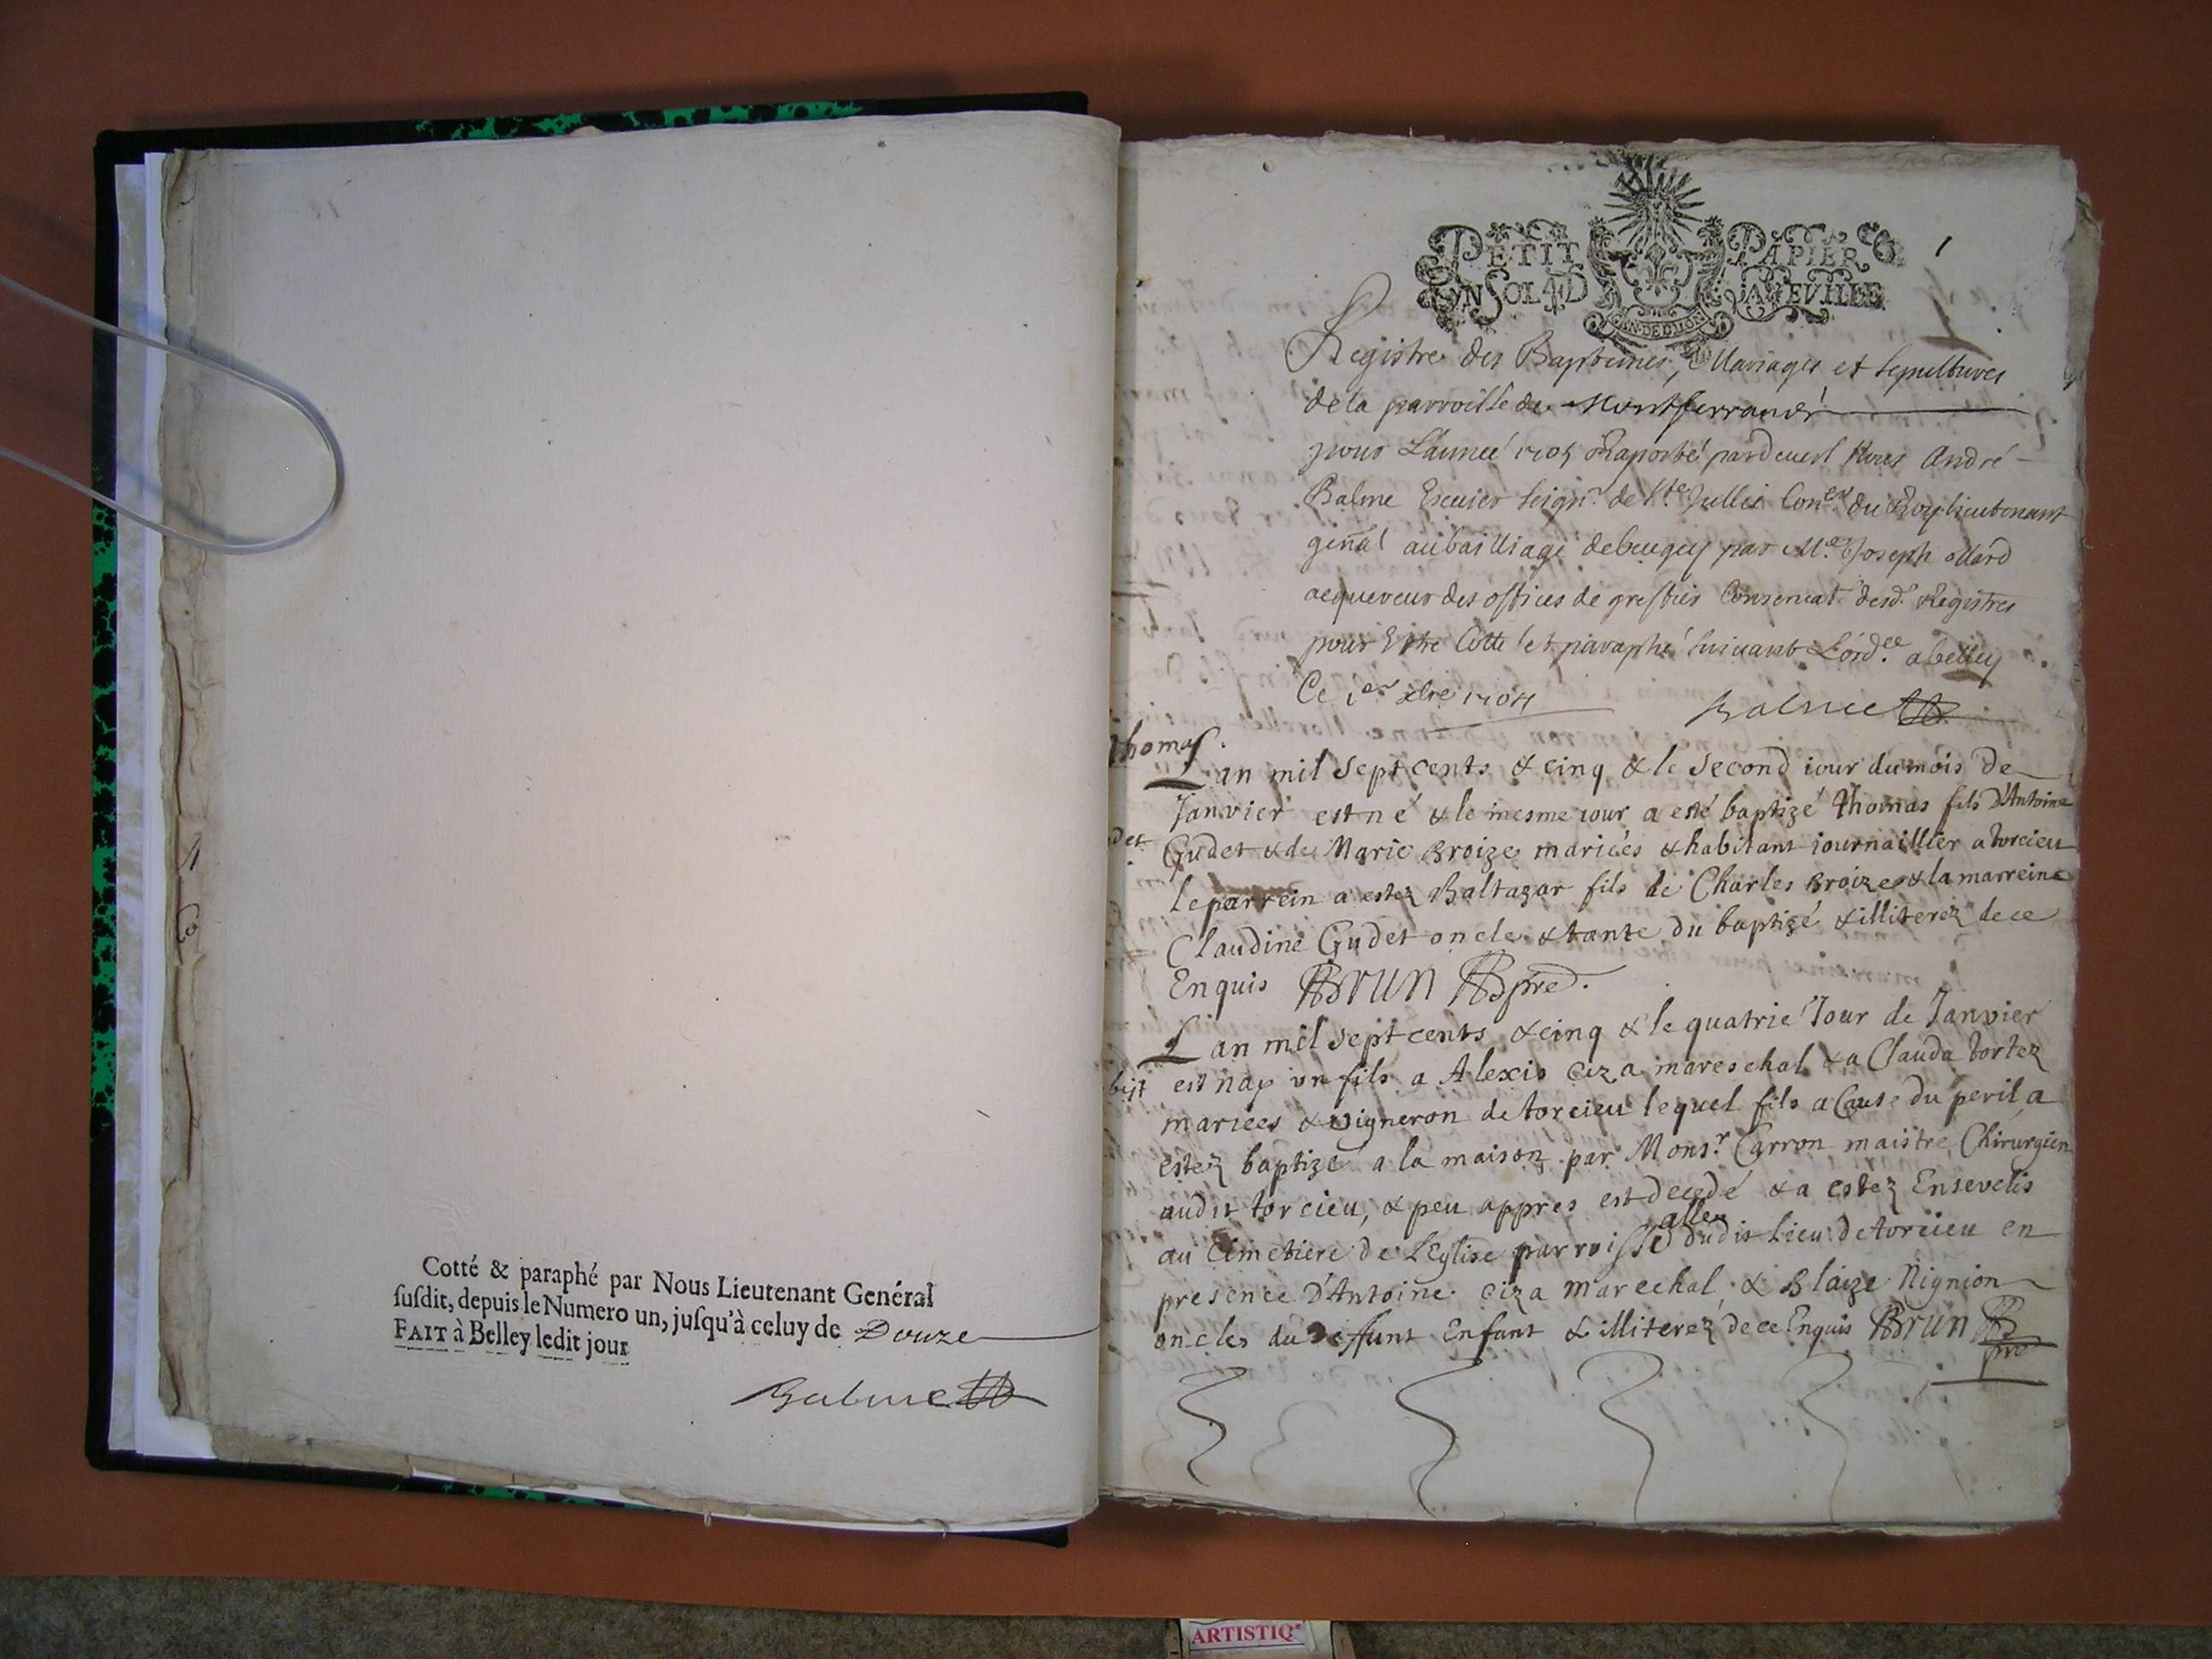 Cotté & paraphé par Nous Lieutenant General
susdit, depuis le Numero un, jusqu'à celuy de Douze
FAIT à Belley ledit jour
Balme
PETIT PAPIER
UN SOL 4 D LA FEVILLE
GEN. DE DIJON
1
Registre des Baptemes, Mariages et sepultures
de la parroisse de Montferrand
pour L'année 1705 Raporté pardevest Nous André
Balme Escuier seignr. de Ste Jullie Coner du Roy lieutenant
genal au bailliage de bugey par Me Joseph
acquereur des offices de greffier Conservat. desd. Registres
pour Estre Cotté et paraphé suivant L'ordce a belley
Ce 1er xbre 1704
Balme
Thomas
L an mil Sept cents & cinq & le Second iour du mois de
Janvier est né & le mesme iour a esté baptizé Thomas fils d'Antoine
det Gudet & de Marie Broize mariées & habitant iournaillier a torcieu
le parrein a estez Baltazar fils de Charles Broize & la marreine
Claudine Gudet oncle & tante du baptizé & illiterez de ce
Enquis BRUN pre.
L an mil Sept cents & cinq & le quatrie Jour de Janvier
est nay un fils a Alexis Ciza mareschal & a Clauda tortez
mariees & vigneron de torcieu lequel fils a Cause du peril a
estez baptizé a la maison par Monsr Carron maistre Chirurgien
audit torcieu, & peu appres est decedé & a estez Ensevelis
au Cimetiere de L'Eglise parroissialle dudit Lieu de torcieu en
presence d'Antoine Ciza marechal & Blaize Nignion
oncles du deffunt Enfant & illiterez de ce Enquis BRUN
pre
ARTISTIQ